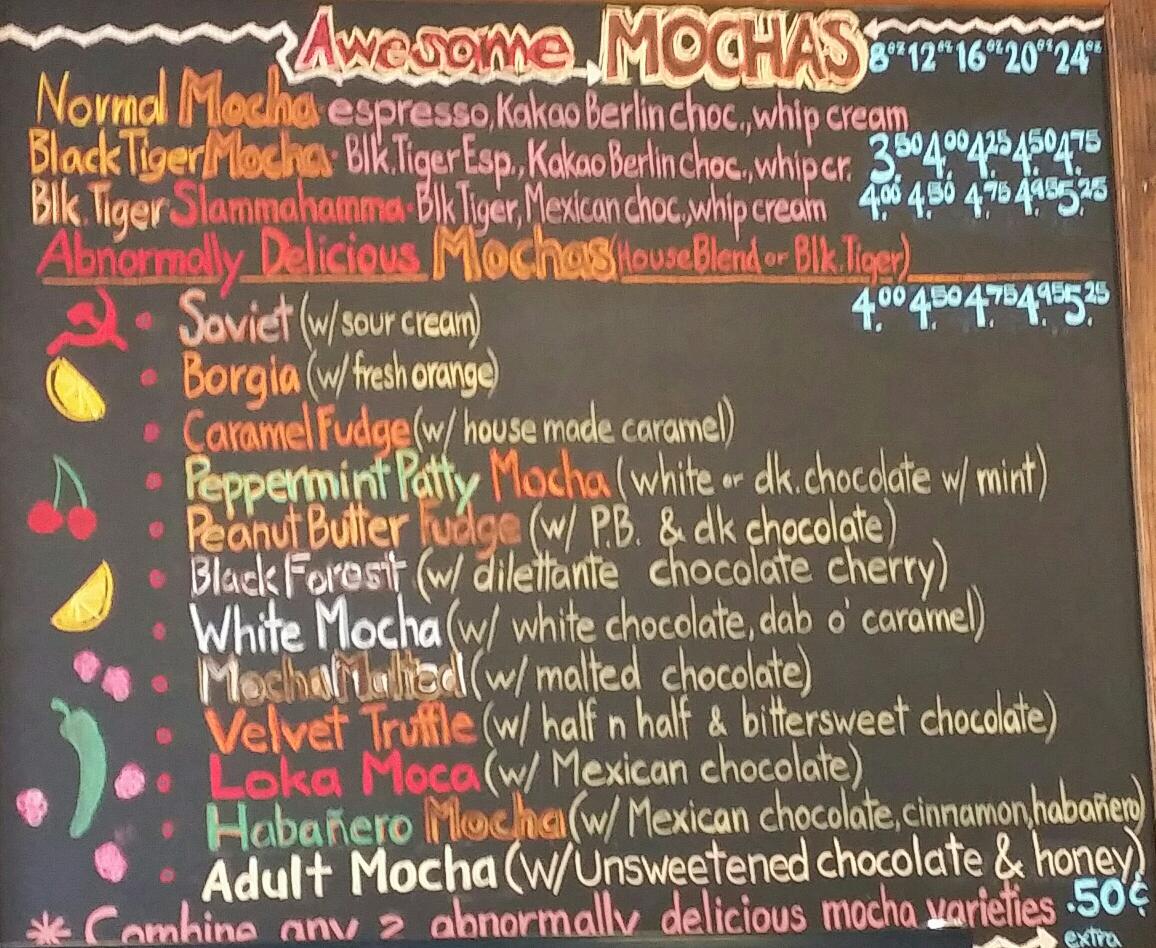 Awesome MOCHAS 8oz 12oz 16oz 20oz 24oz
Normal Mocha espresso, Kakao Berlin choc., whip cream
Black Tiger Mocha · Blk. Tiger Esp., Kakao Berlin choc., whip cr. 3.50 4.00 4.25 4.50 4.75
Blk. Tiger Slammahamma · Blk Tiger, Mexican choc., whip cream 4.00 4.50 4.75 4.95 5.25
Abnormally Delicious Mochas (House Blend or Blk. Tiger)
4.00 4.50 4.75 4.95 5.25
• Soviet (w/ sour cream)
• Borgia (w/ fresh orange)
• Caramel Fudge (w/ house made caramel)
• Peppermint Patty Mocha (white or dk. chocolate w/ mint)
• Peanut Butter Fudge (w/ P.B. & dk chocolate)
• Black Forest (w/ dilettante chocolate cherry)
• White Mocha (w/ white chocolate, dab o' caramel)
• Mocha Malted (w/ malted chocolate)
• Velvet Truffle (w/ half n half & bittersweet chocolate)
• Loka Moca (w/ Mexican chocolate)
• Habañero Mocha (w/ Mexican chocolate, cinnamon, habañero)
• Adult Mocha (w/ Unsweetened chocolate & honey)
* Combine any 2 abnormally delicious mocha varieties .50¢
extra